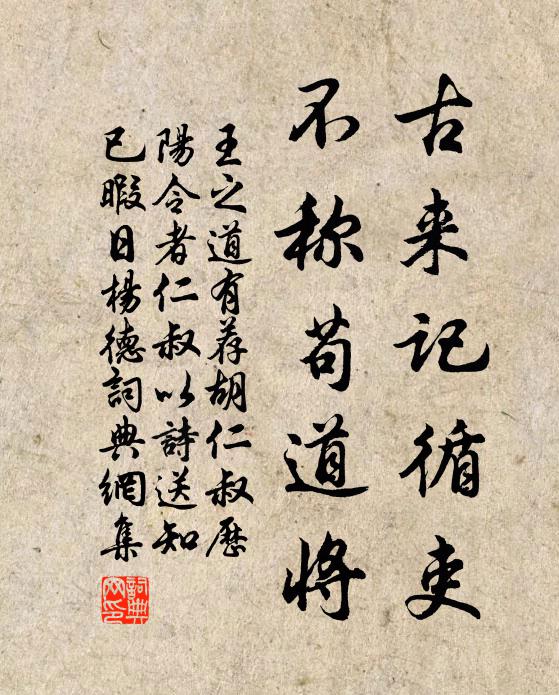 古来记循吏
不称苟道将
王之道有荐胡仁叔历
陽令者仁叔以詩送知
已暇日楊德詞典網集
詞典